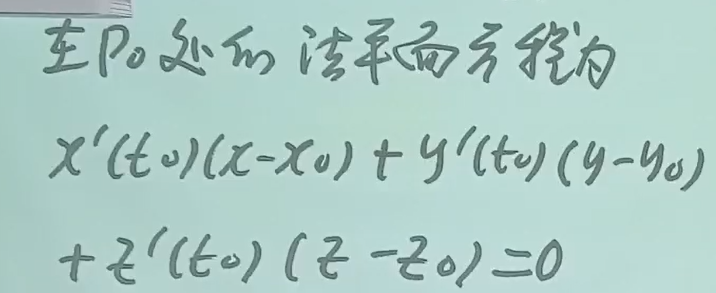 在P₀处的法平面方程为
x'(t₀)(x-x₀)+y'(t₀)(y-y₀)
+z'(t₀)(z-z₀)=0